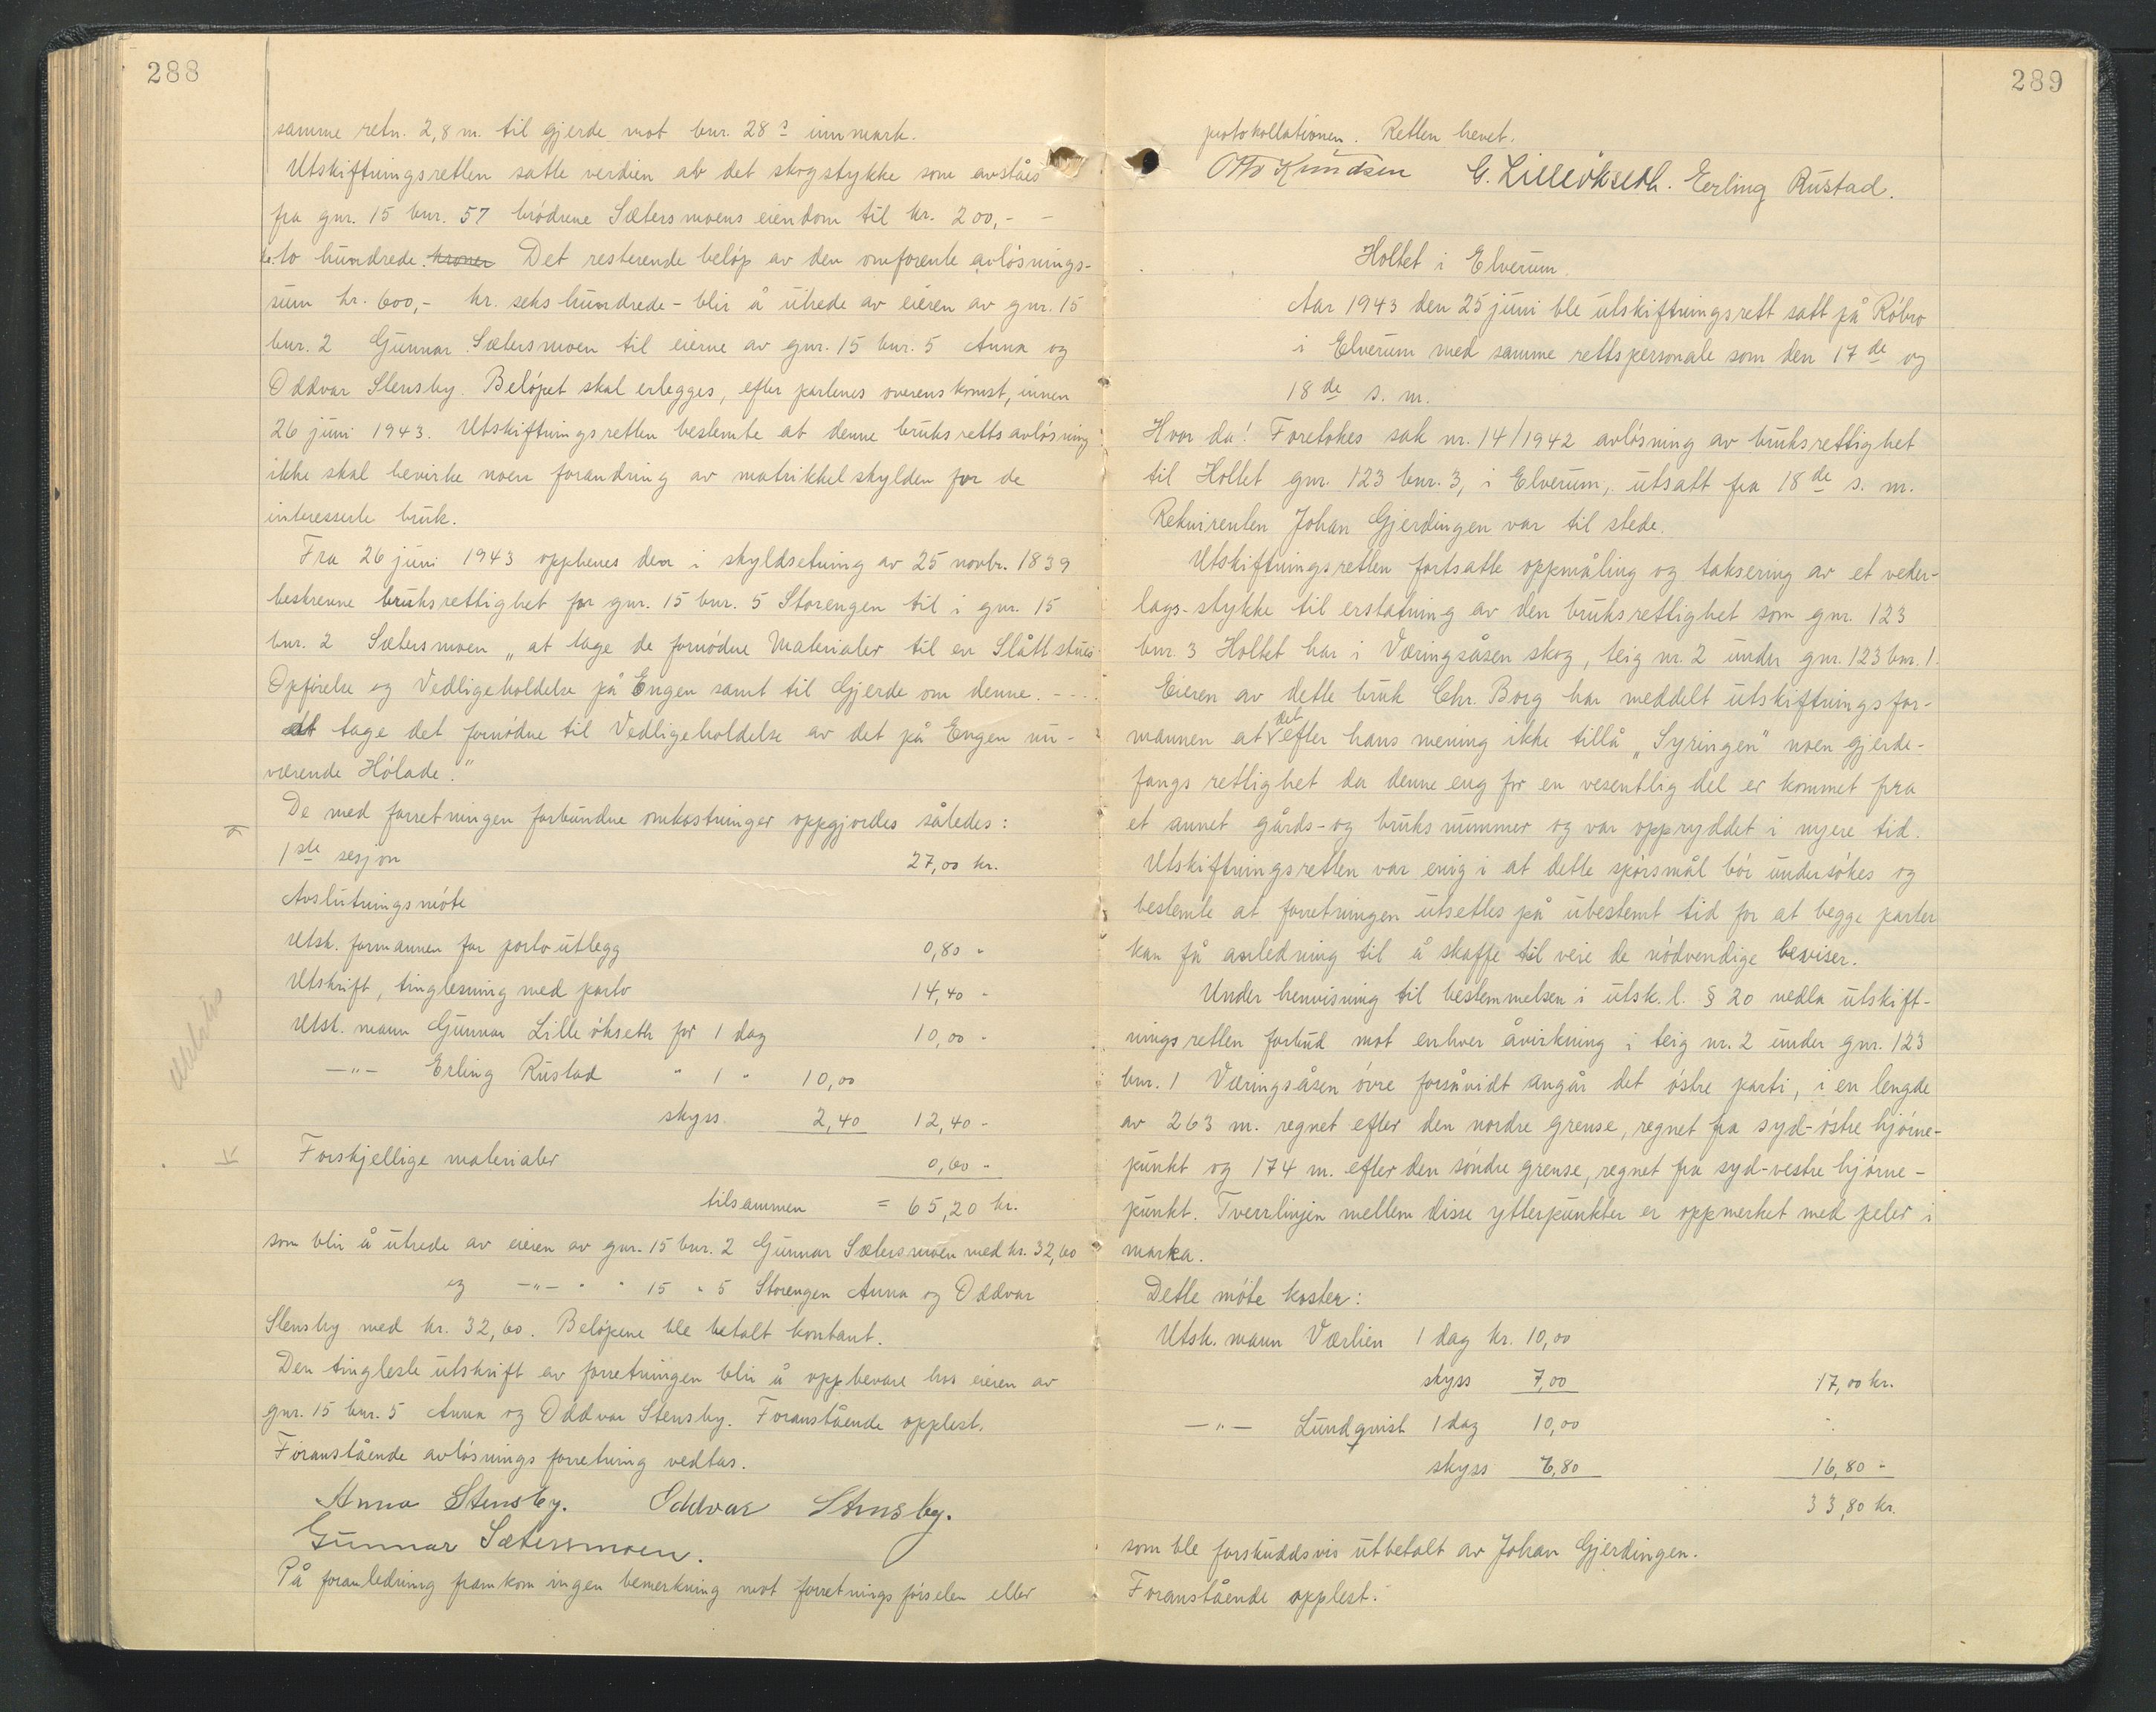 288
samme retn. 2,8 m. til gjerde mot bnr. 28s innmark.
Utskiftningsretten satte verdien av det skogstykke som avståes
fra gnr. 15 bnr. 57 brødrene Sætersmoens eiendom til kr. 200,- -
kr. to hundrede. kroner Det resterende beløp av den omforente avløsnings-
sum kr. 600,- kr. seks hundrede - blir å utrede av eieren av gnr. 15
bnr. 2 Gunnar Sætersmoen til eierne av gnr. 15 bnr. 5 Anna og
Oddvar Stensby. Beløpet skal erlegges, efter partenes overenskomst, innen
26 juni 1943. Utskiftningsretten bestemte at denne bruksrettsavløsning
ikke skal bevirke noen forandring av matrikkelskylden for de
interesserte bruk.
Fra 26 juni 1943 opphenes den i skyldsetning av 25 novbr. 1839
beskrevne bruksrettighet for gnr. 15 bnr. 5 Storengen til i gnr. 15
bnr. 2 Sætersmoen „at tage de fornødne Materialer til en Slåttstues
Opførelse og Vedligeholdelse på Engen samt til Gjerde om denne. - - . .
at tage det fornødne til Vedligeholdelse av det på Engen nu-
værende Hølade."
De med forretningen forbundne omkostninger oppgjordes således:
1ste sesjon 27,00 kr.
Avslutningsmøte
Utsk. formannen for porto utlegg 0,80 "
Utskrift, tinglesning med porto 14,40 -
Utsk. mann Gunnar Lilleøkseth for 1 dag 10,00 -
—"— Erling Rustad " 1 " 10,00
skyss 2,40 12,40 -
Forskjellige materialer 0,60 -
tilsammen = 65,20 kr.
som blir å utrede av eieren av gnr. 15 bnr. 2 Gunnar Sætersmoen med kr. 32,60
og —"— " " 15 " 5 Storengen Anna og Oddvar
Stensby med kr. 32,60. Beløpene ble betalt kontant.
Den tingleste utskrift av forretningen blir å oppbevare hos eieren av
gnr. 15 bnr. 5 Anna og Oddvar Stensby. Foranstående opplest.
Foranstående avløsnings forretning vedtas.
Anna Stensby. Oddvar Stensby.
Gunnar Sætersmoen.
På foranledning framkom ingen bemerkning mot forretningsførselen eller
289
protokollationen. Retten hevet.
Otto Knudsen G. Lilleökseth. Erling Rustad.
Holtet i Elverum.
Aar 1943 den 25 juni ble utskiftningsrett satt på Røbro
i Elverum med samme rettspersonale som den 17de og
18de s. m.
Hvor da! Foretokes sak nr. 14/1942 avløsning av bruksrettighet
til Holtet gnr. 123 bnr. 3, i Elverum, utsatt fra 18de s. m.
Rekvirenten Johan Gjerdingen var til stede.
Utskiftningsretten fortsatte oppmåling og taksering av et veder-
lags-stykke til erstatning av den bruksrettighet som gnr. 123
bnr. 3 Holtet har i Væringsåsen skog, teig nr. 2 under gnr. 123 bnr. 1.
Eieren av dette bruk Chr. Borg har meddelt utskiftningsfor-
mannen at det efter hans mening ikke tillå „Syringen" noen gjerde-
fangs rettighet da denne eng for en vesentlig del er kommet fra
et annet gårds- og bruksnummer og var oppryddet i nyere tid.
Utskiftningsretten var enig i at dette spørsmål bør undersøkes og
bestemte at forretningen utsettes på ubestemt tid for at begge parter
kan få anledning til å skaffe til veie de nødvendige beviser.
Under henvisning til bestemmelsen i utsk. l. § 20 nedla utskift-
ningsretten forbud mot enhver åvirkning i teig nr. 2 under gnr. 123
bnr. 1 Væringsåsen øvre forsåvidt angår det østre parti, i en lengde
av 263 m. regnet efter den nordre grense, regnet fra syd-østre hjørne-
punkt og 174 m. efter den søndre grense, regnet fra syd-vestre hjørne-
punkt. Tverrlinjen mellem disse ytterpunkter er oppmerket med peler i
marka.
Dette møte koster:
Utsk. mann Værlien 1 dag kr. 10,00
skyss 7,00 17,00 kr.
—"— Lundqvist 1 dag 10,00
skyss 6,80 16,80 -
33,80 kr.
som ble forskuddsvis utbetalt av Johan Gjerdingen.
Foranstående opplest.